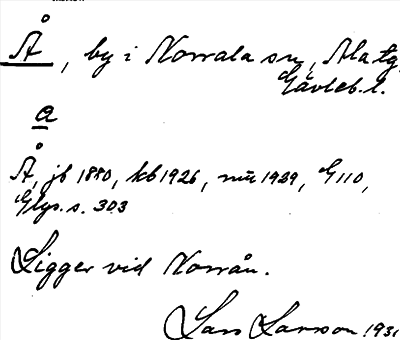 Å, by i Norrala sn, Ala tg.
Gävleb. l.
a
Å, jb 1880, kb 1926, 1929, G 110,
Glys. s. 303
Ligger vid Norrån.
Lars Larsson 1931